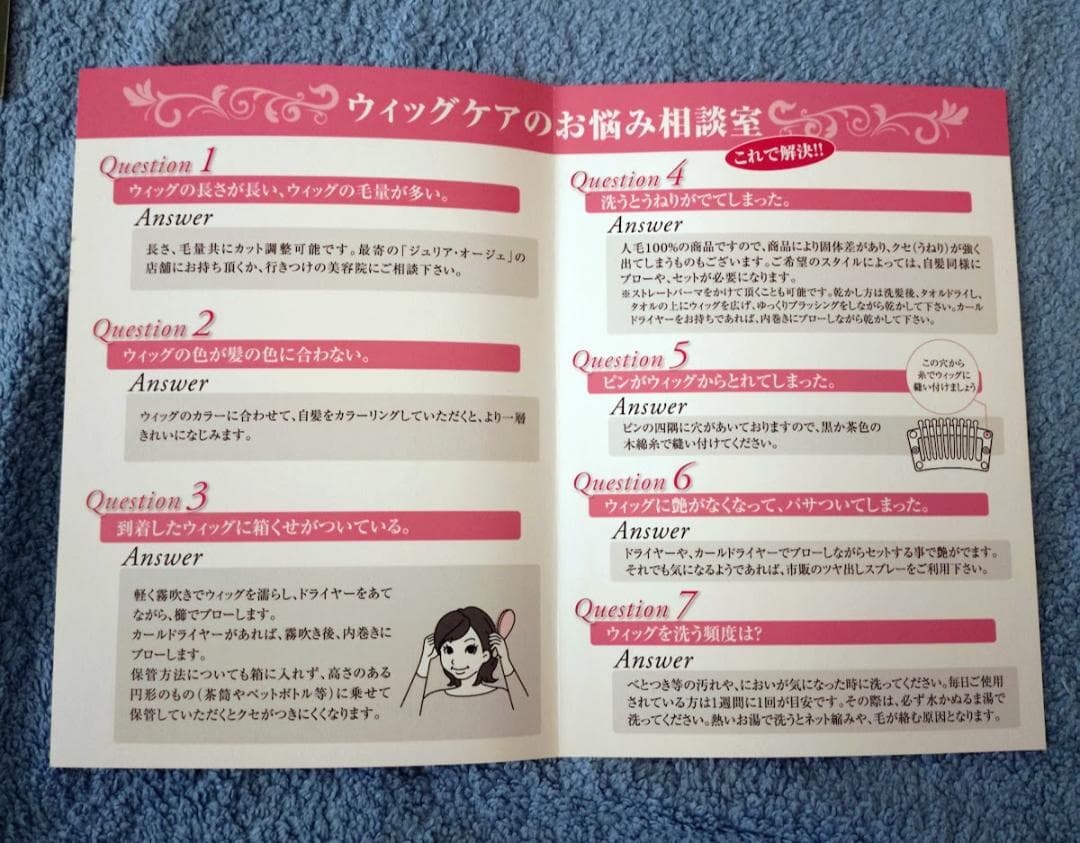 ウィッグケアのお悩み相談室
これで解決!!
Question 1
ウィッグの長さが長い、ウィッグの毛量が多い。
Answer
長さ、毛量共にカット調整可能です。最寄の「ジュリア・オージェ」の
店舗にお持ち頂くか、行きつけの美容院にご相談下さい。
Question 2
ウィッグの色が髪の色に合わない。
Answer
ウィッグのカラーに合わせて、自髪をカラーリングしていただくと、より一層
きれいになじみます。
Question 3
到着したウィッグに箱くせがついている。
Answer
軽く霧吹きでウィッグを濡らし、ドライヤーをあて
ながら、櫛でブローします。
カールドライヤーがあれば、霧吹き後、内巻きに
ブローします。
保管方法についても箱に入れず、高さのある
円形のもの（茶筒やペットボトル等）に乗せて
保管していただくとクセがつきにくくなります。
Question 4
洗うとうねりがでてしまった。
Answer
人毛100%の商品ですので、商品により固体差があり、クセ（うねり）が強く
出てしまうものもございます。ご希望のスタイルによっては、自髪同様に
ブローや、セットが必要になります。
※ストレートパーマをかけて頂くことも可能です。乾かし方は洗髪後、タオルドライし、
タオルの上にウィッグを広げ、ゆっくりブラッシングをしながら乾かして下さい。カール
ドライヤーをお持ちであれば、内巻きにブローしながら乾かして下さい。
Question 5
ピンがウィッグからとれてしまった。
Answer
ピンの四隅に穴があいておりますので、黒か茶色の
木綿糸で縫い付けてください。
この穴から
糸でウィッグに
縫い付けましょう
Question 6
ウィッグに艶がなくなって、パサついてしまった。
Answer
ドライヤーや、カールドライヤーでブローしながらセットする事で艶がでます。
それでも気になるようであれば、市販のツヤ出しスプレーをご利用下さい。
Question 7
ウィッグを洗う頻度は?
Answer
べとつき等の汚れや、においが気になった時に洗ってください。毎日ご使用
されている方は1週間に1回が目安です。その際は、必ず水かぬるま湯で
洗ってください。熱いお湯で洗うとネット縮みや、毛が絡む原因となります。